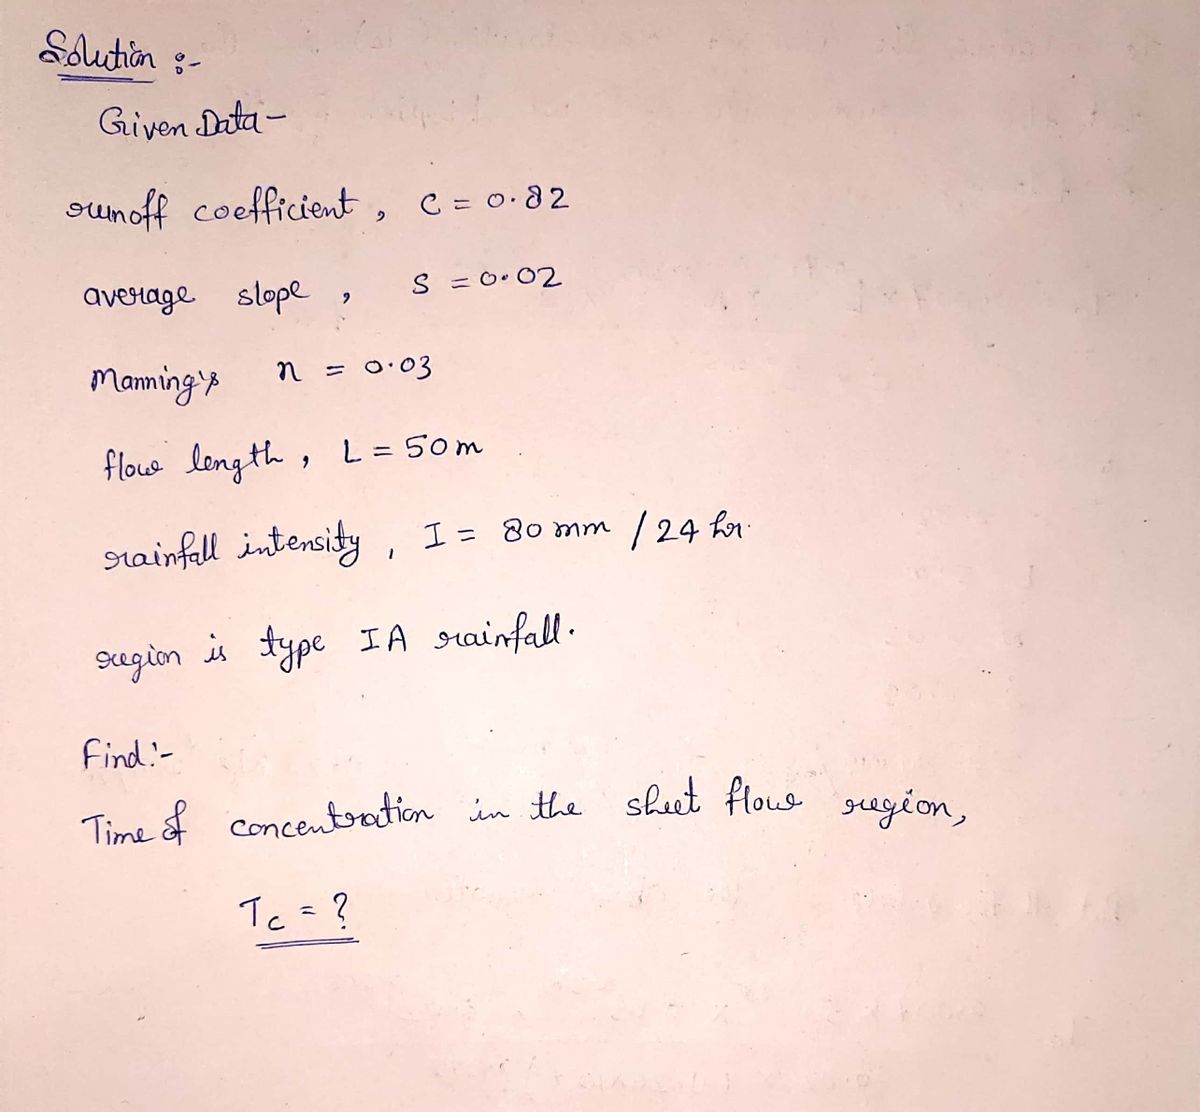 Solution :-
Given Data -
runoff coefficient, C = 0.82
average slope, S = 0.02
Manning's n = 0.03
flow length, L = 50m
rainfall intensity, I = 80 mm / 24 hr.
region is type IA rainfall.
Find:-
Time of concentration in the sheet flow region,
Tc = ?